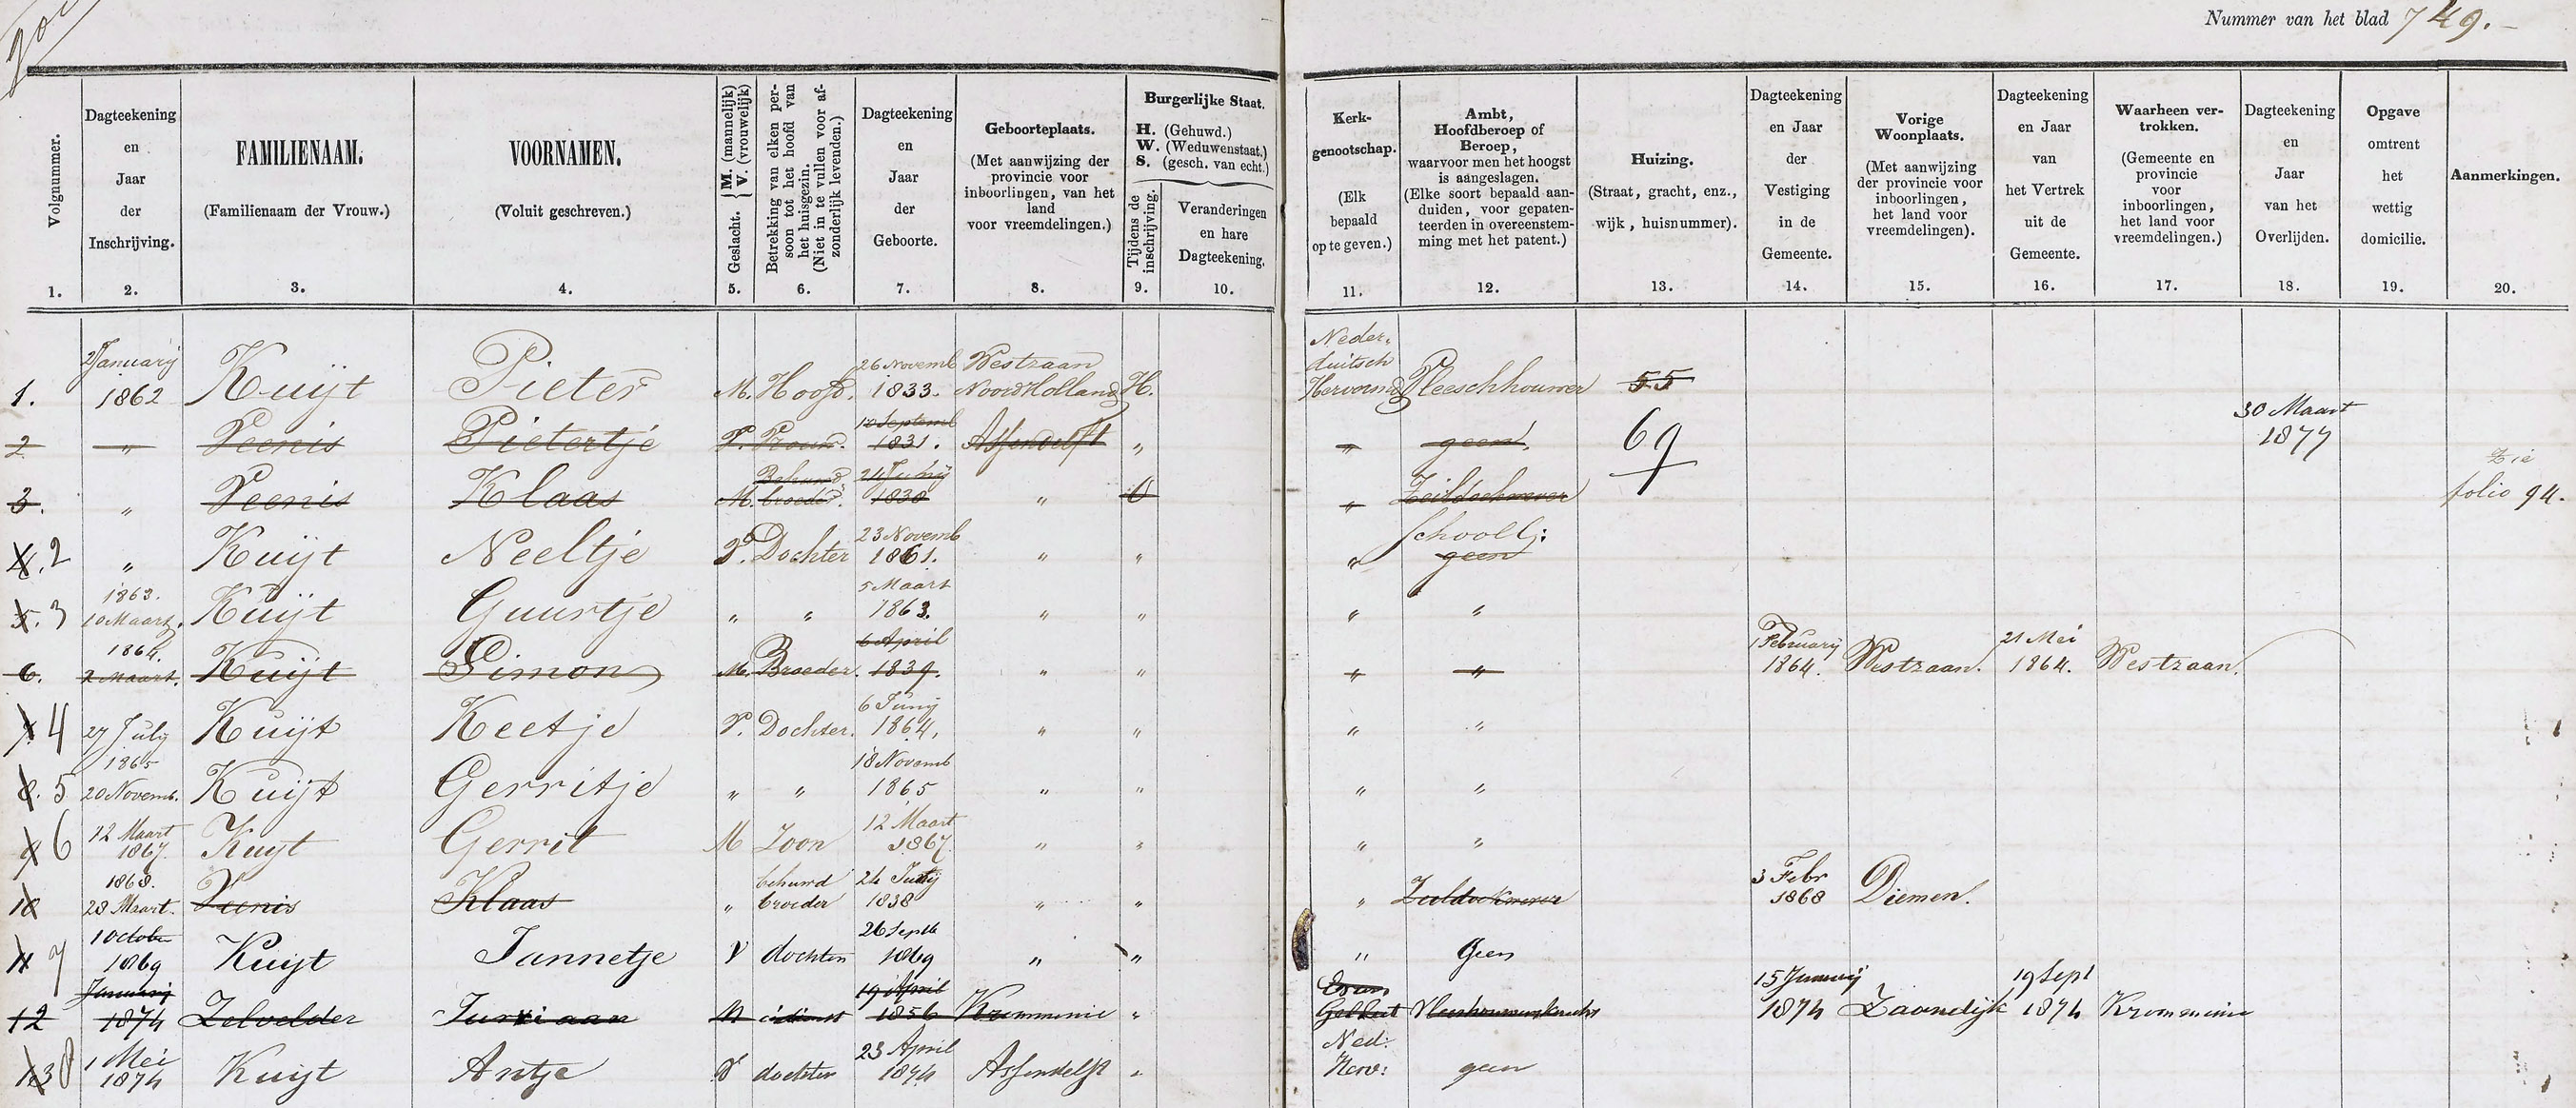 Nummer van het blad 749.
Volgnummer.
Dagteekening en Jaar der Inschrijving.
FAMILIENAAM.
(Familienaam der Vrouw.)
VOORNAMEN.
(Voluit geschreven.)
Geslacht. { M. (mannelijk) V. (vrouwelijk)
Betrekking van elken persoon tot het hoofd van het huisgezin. (Niet in te vullen voor afzonderlijk levenden.)
Dagteekening en Jaar der Geboorte.
Geboorteplaats.
(Met aanwijzing der provincie voor inboorlingen, van het land voor vreemdelingen.)
Burgerlijke Staat.
H. (Gehuwd.)
W. (Weduwenstaat.)
S. (gesch. van echt.)
Tijdens de inschrijving.
Veranderingen en hare Dagteekening.
Kerkgenootschap.
(Elk bepaald op te geven.)
Ambt, Hoofdberoep of Beroep, waarvoor men het hoogst is aangeslagen.
(Elke soort bepaald aanduiden, voor gepatenteerden in overeenstemming met het patent.)
Huizing.
(Straat, gracht, enz., wijk, huisnummer).
Dagteekening en Jaar der Vestiging in de Gemeente.
Vorige Woonplaats.
(Met aanwijzing der provincie voor inboorlingen, het land voor vreemdelingen).
Dagteekening en Jaar van het Vertrek uit de Gemeente.
Waarheen vertrokken.
(Gemeente en provincie voor inboorlingen, het land voor vreemdelingen.)
Dagteekening en Jaar van het Overlijden.
Opgave omtrent het wettig domicilie.
Aanmerkingen.
1. 2. 3. 4. 5. 6. 7. 8. 9. 10. 11. 12. 13. 14. 15. 16. 17. 18. 19. 20.
1. January 1862 Kuijt Pieter M. Hoofd. 26 Novemb 1833. Westzaan Noord Holland H. Neder. duitsch Hervormd Vleeschhouwer 55
2 " Peenis Pietertje V. Vrouw. 12 Septemb 1831. Assendelft " " geen. 69 30 Maart 1877
3. " Peenis Klaas M. Behuwd broeder. 24 July 1838 " O " Zeildoekwever Zie folio 94.
4. 2 " Kuijt Neeltje V. Dochter 23 Novemb 1861. " " " Schooll: geen
5. 3 1863. 10 Maart. Kuijt Guurtje " " 5 Maart 1863. " " " "
6. 1864. 2 Maart. Kuijt Simon M. Broeder. 6 April 1839. " " " " 1 February 1864. Westzaan. 21 Mei 1864. Westzaan.
7. 4 27 July Kuijt Keetje V. Dochter. 6 Junij 1864. " " " "
8. 5 1865 20 Novemb. Kuijt Gerritje " " 18 Novemb 1865 " " " "
9 6 12 Maart 1867. Kuyt Gerrit M Zoon 12 Maart 1867. " " " "
10 1868. 28 Maart. Peenis Klaas " behuwd broeder 24 July 1838 " " " Zeildoekwever 3 Febr 1868 Diemen.
11 7 1 October 1869 Kuijt Jannetje V dochter 26 Septb 1869 " " " Geen
12 January 1874 Zelvelder Jurriaan M 19 April 1856 Krommenie " 15 January 1874 Zaandijk 19 Sept 1874 Krommenie
13 8 1 Mei 1874 Kuijt Antje V dochter 23 April 1874 Assendelft " Ned: Herv: geen